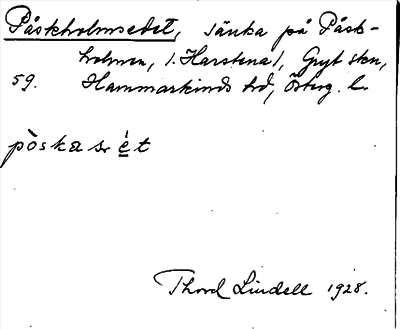 Påskholmsedet, sänka på Påsk-
holmen, /. Harstena /, Gryt skn,
59. Hammarkinds hd, Österg. l.
påskasr ét
Thord Lindell 1928.